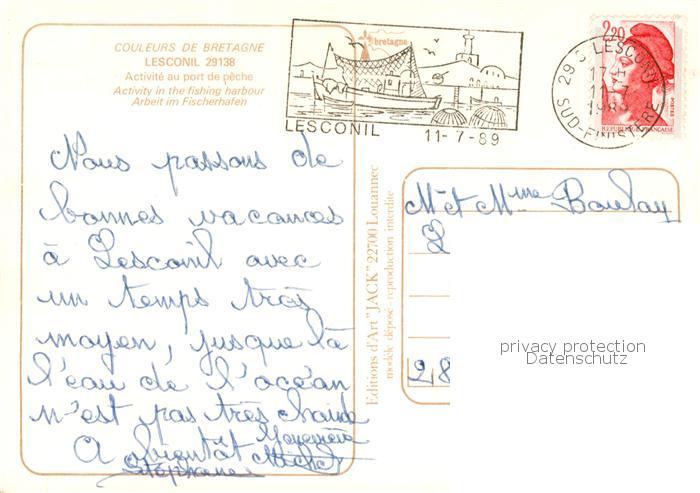 COULEURS DE BRETAGNE
LESCONIL 29138
Activité au port de pêche
Activity in the fishing harbour
Arbeit im Fischerhafen
bretagne
LESCONIL 11-7-89
2,20
29 S LESCONIL
11-7
1989
SUD-FINISTERE
REPUBLIQUE FRANÇAISE
POSTES
Nous passons de
bonnes vacances
à Lesconil avec
un temps très
moyen, jusque là
l'eau de l'océan
n'est pas très chaude
A bientôt
Geneviève
Michel
Stéphane
Editions d'Art "JACK" 22700 Louannec
modèle déposé - reproduction interdite
Mr et Mme Boulay
28
privacy protection
Datenschutz